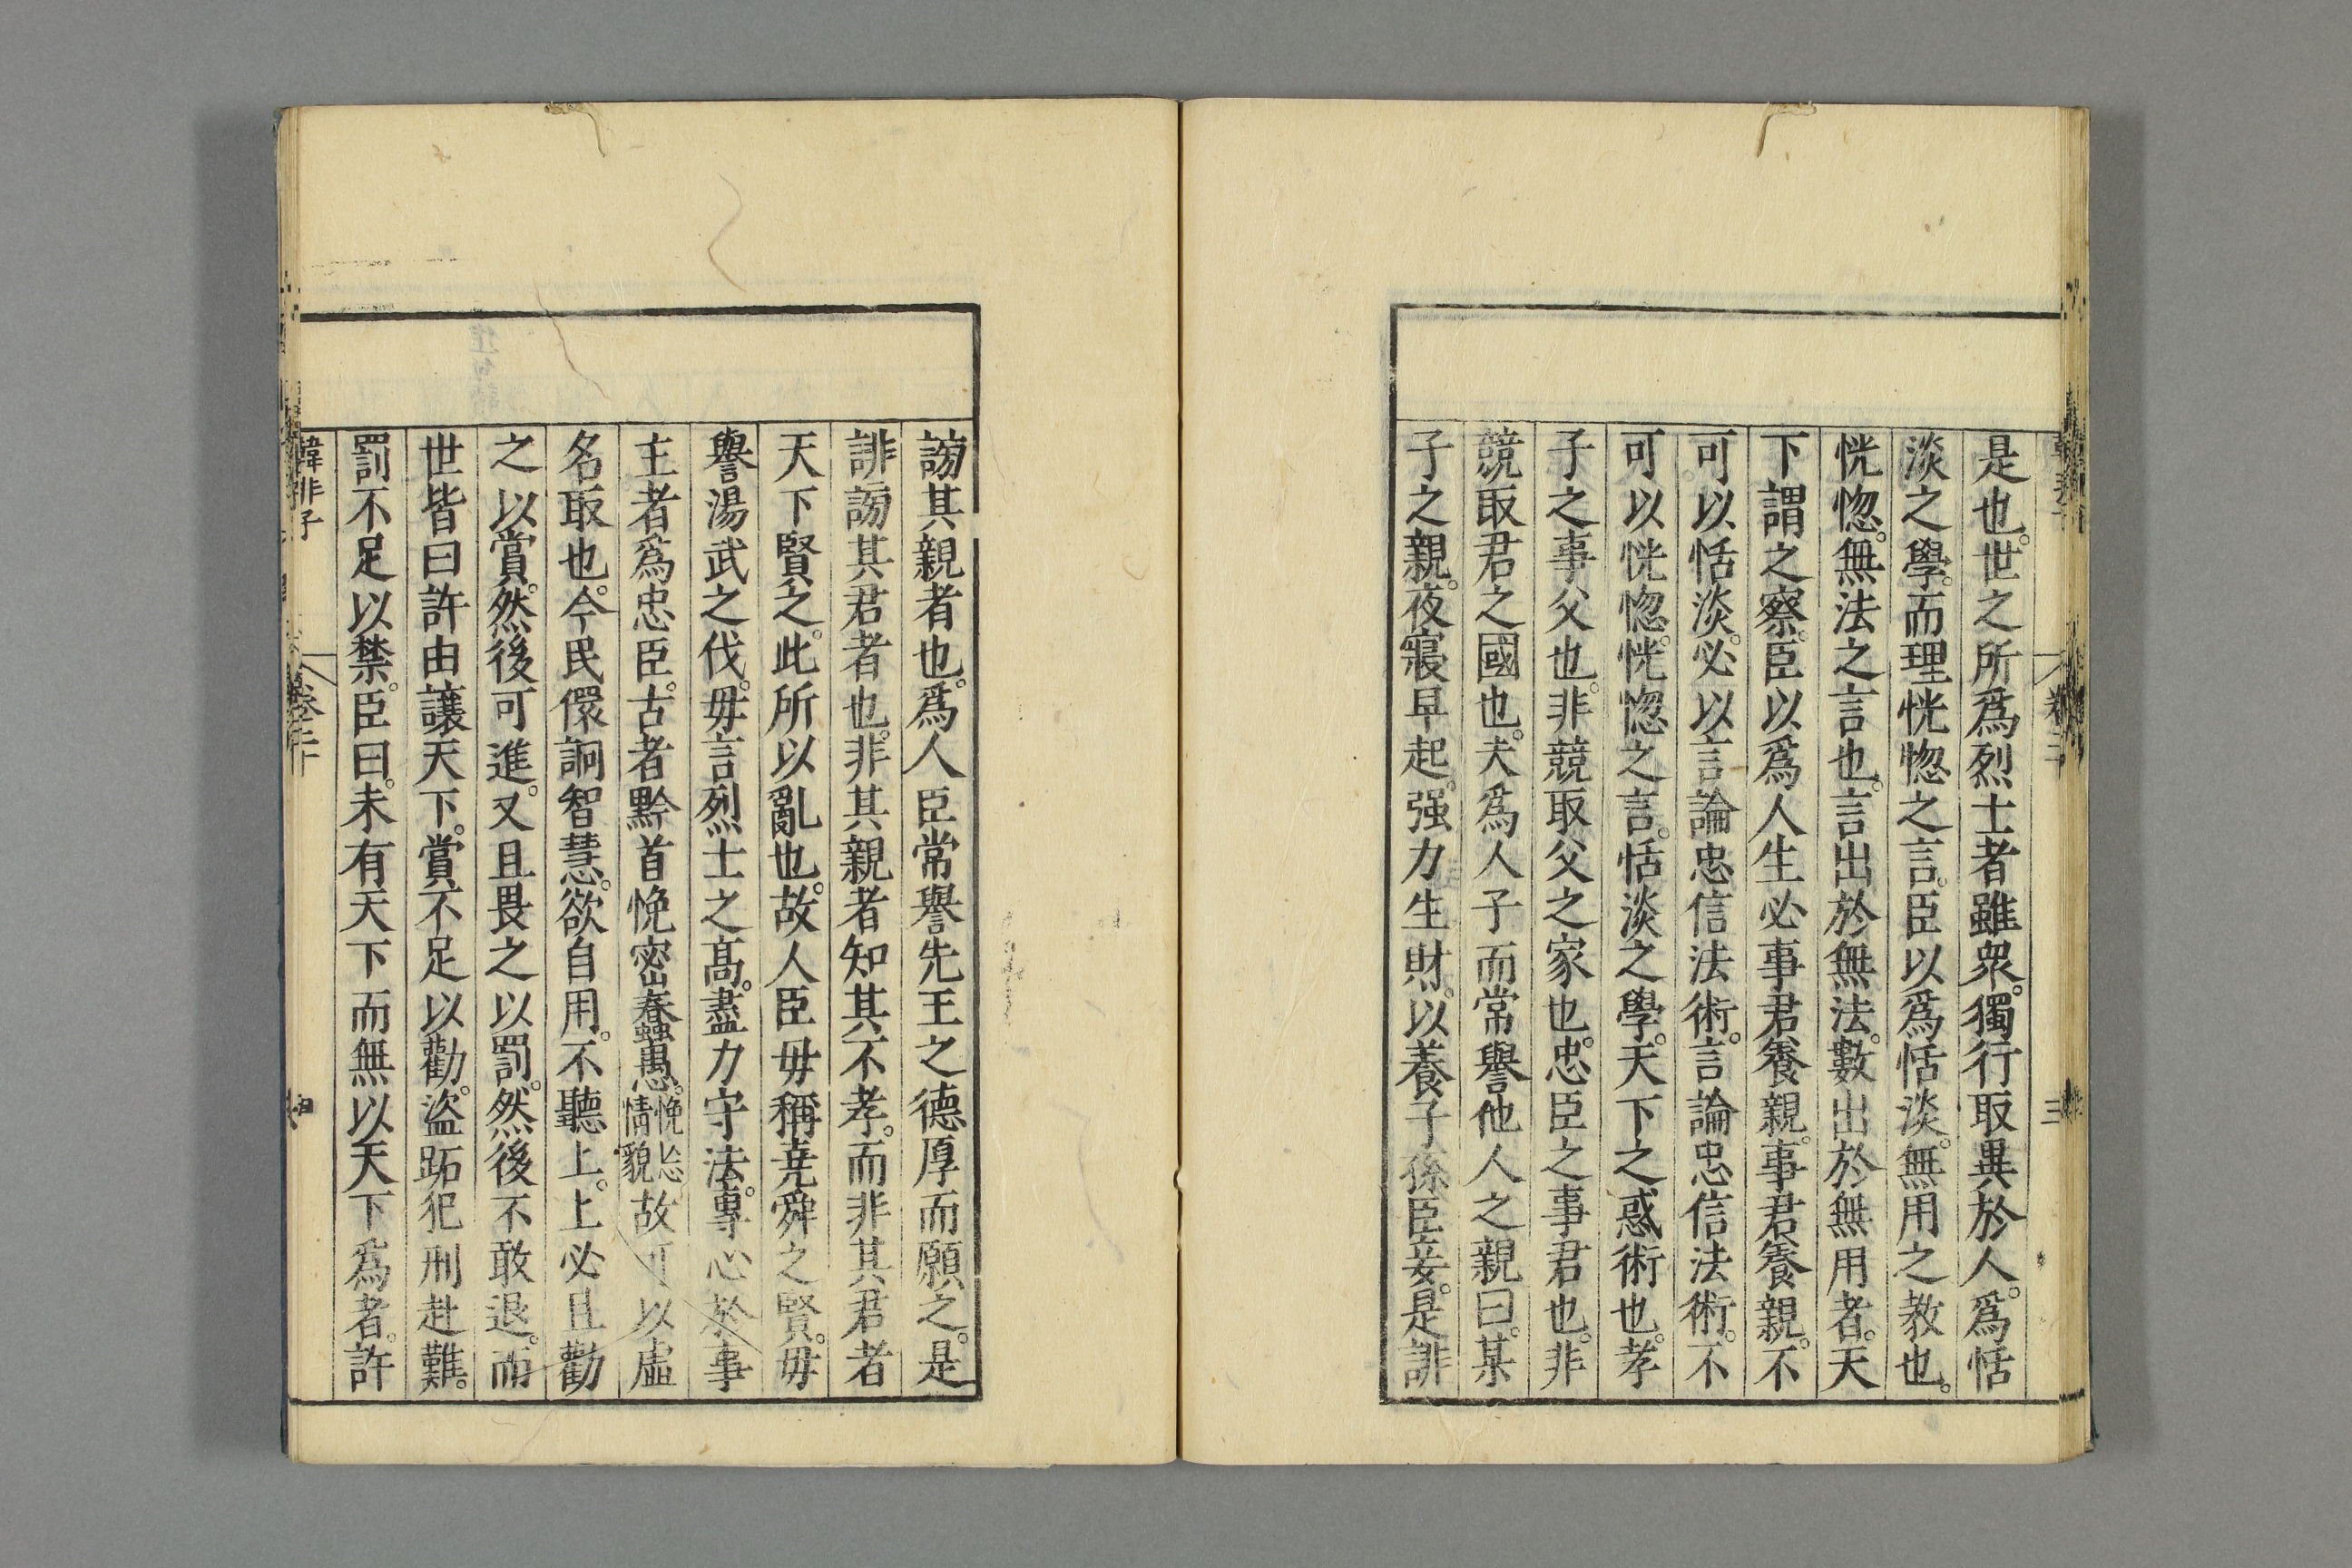 是也。世之所爲烈士者雖衆。獨行取異於人。爲恬
淡之學。而理恍惚之言。臣以爲恬淡。無用之教也。
恍惚。無法之言也。言出於無法。數出於無用者。天
下謂之察。臣以爲人生必事君養親。事君養親。不
可以恬淡。必以言論忠信法術。言論忠信法術。不
可以恍惚。恍惚之言。恬淡之學。天下之惑術也。孝
子之事父也。非競取父之家也。忠臣之事君也。非
競取君之國也。夫爲人子而常譽他人之親曰。某
子之親。夜寢早起。强力生財。以養子孫臣妾。是誹
謗其親者也。爲人臣常譽先王之德厚而願之。是
誹謗其君者也。非其親者知其不孝。而非其君者
天下賢之。此所以亂也。故人臣毋稱堯舜之賢。毋
譽湯武之伐。毋言烈士之高。盡力守法。專心於事
主者爲忠臣。古者黔首悗密惷愚。悗忘情貌故可以虛
名取也。今民儇詗智慧。欲自用。不聽上。上必且勸
之以賞。然後可進。又且畏之以罰。然後不敢退。而
世皆曰許由讓天下。賞不足以勸。盜跖犯刑赴難。
罰不足以禁。臣曰。未有天下而無以天下爲者。許
韓非子 卷二十